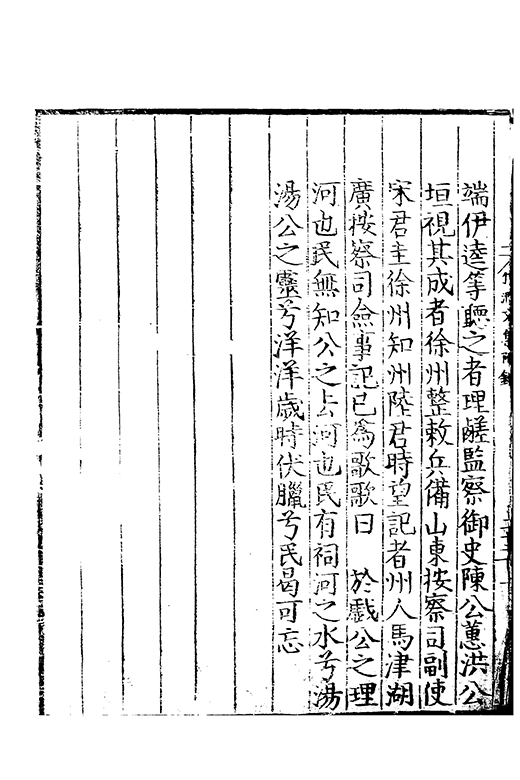 端伊逵等聽之者理鹺監察御史陳公蕙洪公
垣視其成者徐州整敕兵備山東按察司副使
宋君圭徐州知州陸君時望記者州人馬津湖
廣按察司僉事記已為歌歌曰　於戲公之理
河也民無知公之去河也民有祠河之水兮湯
湯公之靈兮洋洋歲時伏臘兮民曷可忘